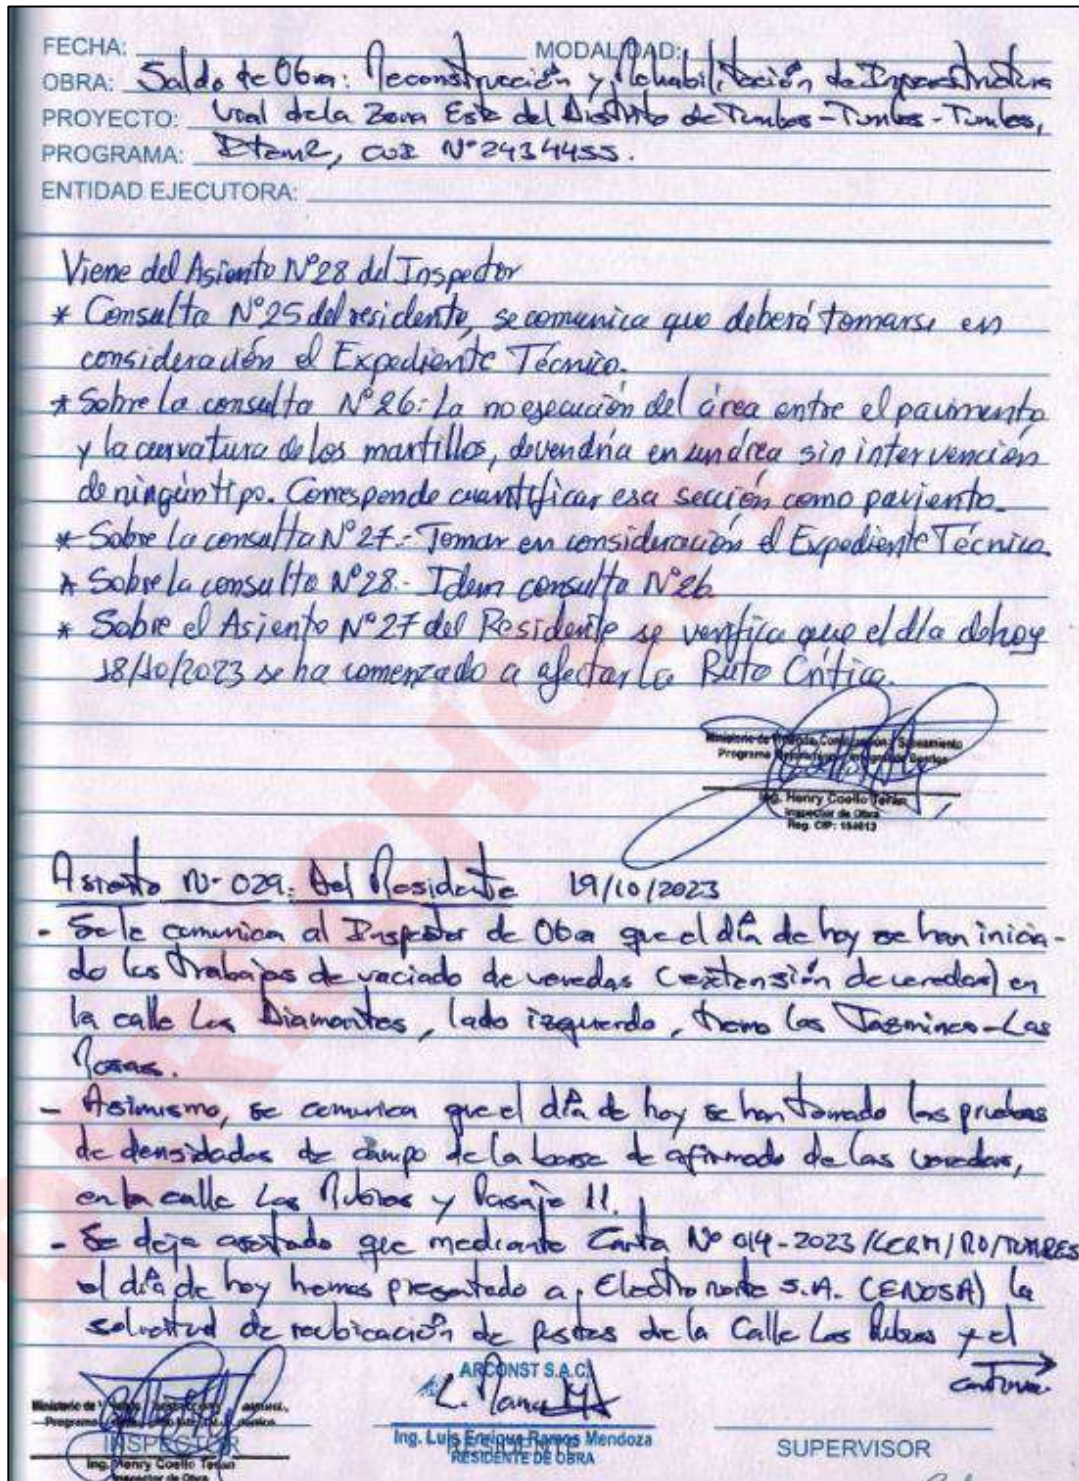 FECHA: MODALIDAD:
OBRA: Saldo de Obra: Reconstrucción y Rehabilitación de Infraestructura
PROYECTO: Vial de la Zona Este del Distrito de Tumbes-Tumbes-Tumbes,
PROGRAMA: Item2, CUI N°2434455.
ENTIDAD EJECUTORA:
Viene del Asiento N°28 del Inspector
* Consulta N°25 del residente, se comunica que deberá tomarse en
consideración el Expediente Técnico.
* Sobre la consulta N°26: La no ejecución del área entre el pavimento
y la curvatura de los martillos, devendría en un área sin intervención
de ningún tipo. Corresponde cuantificar esa sección como paviento.
* Sobre la consulta N°27.- Tomar en consideración el Expediente Técnico.
* Sobre la consulta N°28.- Idem consulta N°26.
* Sobre el Asiento N°27 del Residente se verifica que el día de hoy
18/10/2023 se ha comenzado a afectar la Ruta Crítica.
Ministerio de Vivienda, Construcción y Saneamiento
Programa
Ing. Henry Coello Terán
Inspector de Obra
Reg. CIP:
Asiento N°-029: Del Residente 19/10/2023
- Se le comunica al Inspector de Obra que el día de hoy se han inicia-
do los trabajos de vaciado de veredas (extensión de veredas) en
la calle Los Diamantes, lado izquierdo, tramo los Jasmines-Las
Rosas.
- Asimismo, se comunica que el día de hoy se han tomado las pruebas
de densidades de campo de la base de afirmado de las veredas,
en la calle Los Rubies y Pasaje 11.
- Se deja asentado que mediante Carta N° 014-2023/LERM/RO/TUMBES
el día de hoy hemos presentado a Electronorte S.A. (ENOSA) la
solicitud de reubicación de postes de la Calle Los Rubies y el
continua
ARCONST S.A.C.
Ing. Luis Enrique Ramos Mendoza
RESIDENTE
RESIDENTE DE OBRA
Ministerio de
Programa
INSPECTOR
Ing. Henry Coello Terán
Inspector de Obra
SUPERVISOR